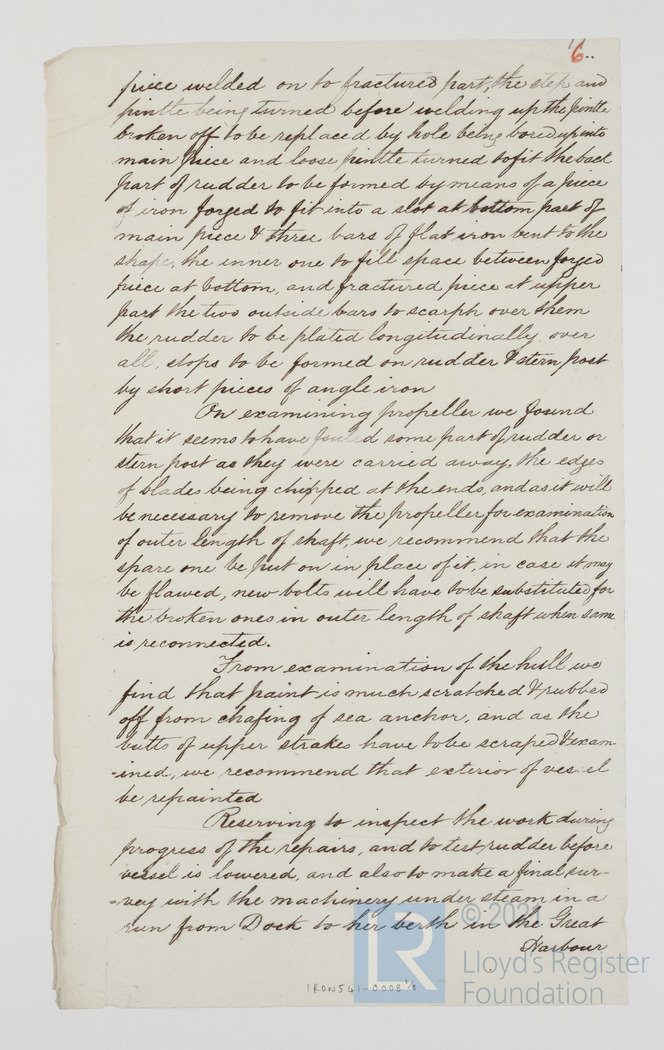 6..
piece welded on to fractured part, the step and
pintle being turned before welding up the pintle
broken off to be replaced by hole being bored up into
main piece and loose pintle turned to fit the back
part of rudder to be formed by means of a piece
of iron forged to fit into a slot at bottom part of
main piece & three bars of flat iron bent to the
shape, the inner one to fill space between forged
piece at bottom, and fractured piece at upper
part the two outside bars to scarph over them
the rudder to be plated longitudinally over
all, stops to be formed on rudder & stern post
by short pieces of angle iron
On examining propeller we found
that it seems to have fouled some part of rudder or
stern post as they were carried away, the edges
of blades being chipped at the ends, and as it will
be necessary to remove the propeller for examination
of outer length of shaft, we recommend that the
spare one be put on in place of it, in case it may
be flawed, new bolts will have to be substituted for
the broken ones in outer length of shaft when same
is reconnected.
From examination of the hull we
find that paint is much scratched & rubbed
off from chafing of sea anchor, and as the
butts of upper strakes have to be scraped & exam-
-ined, we recommend that exterior of vessel
be repainted
Reserving to inspect the work during
progress of the repairs, and to test rudder before
vessel is lowered, and also to make a final sur-
-vey with the machinery under steam in a
run from Dock to her berth in the Great
Harbour
IRON541-0008 1/1
LR
Lloyd's Register
Foundation